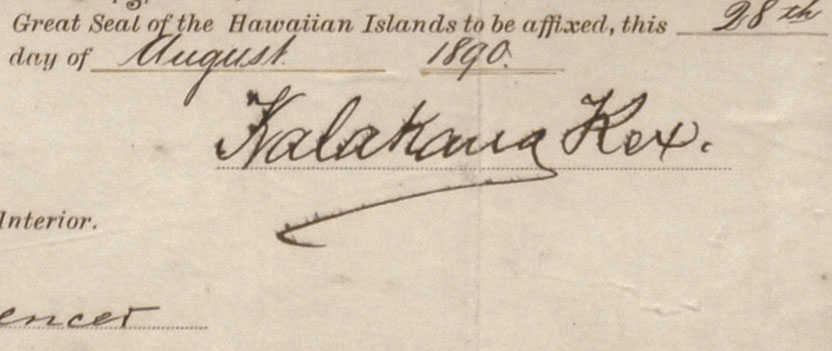 Great Seal of the Hawaiian Islands to be affixed, this 28th
day of August 1890.
Kalakaua Rex.
Interior.
encer